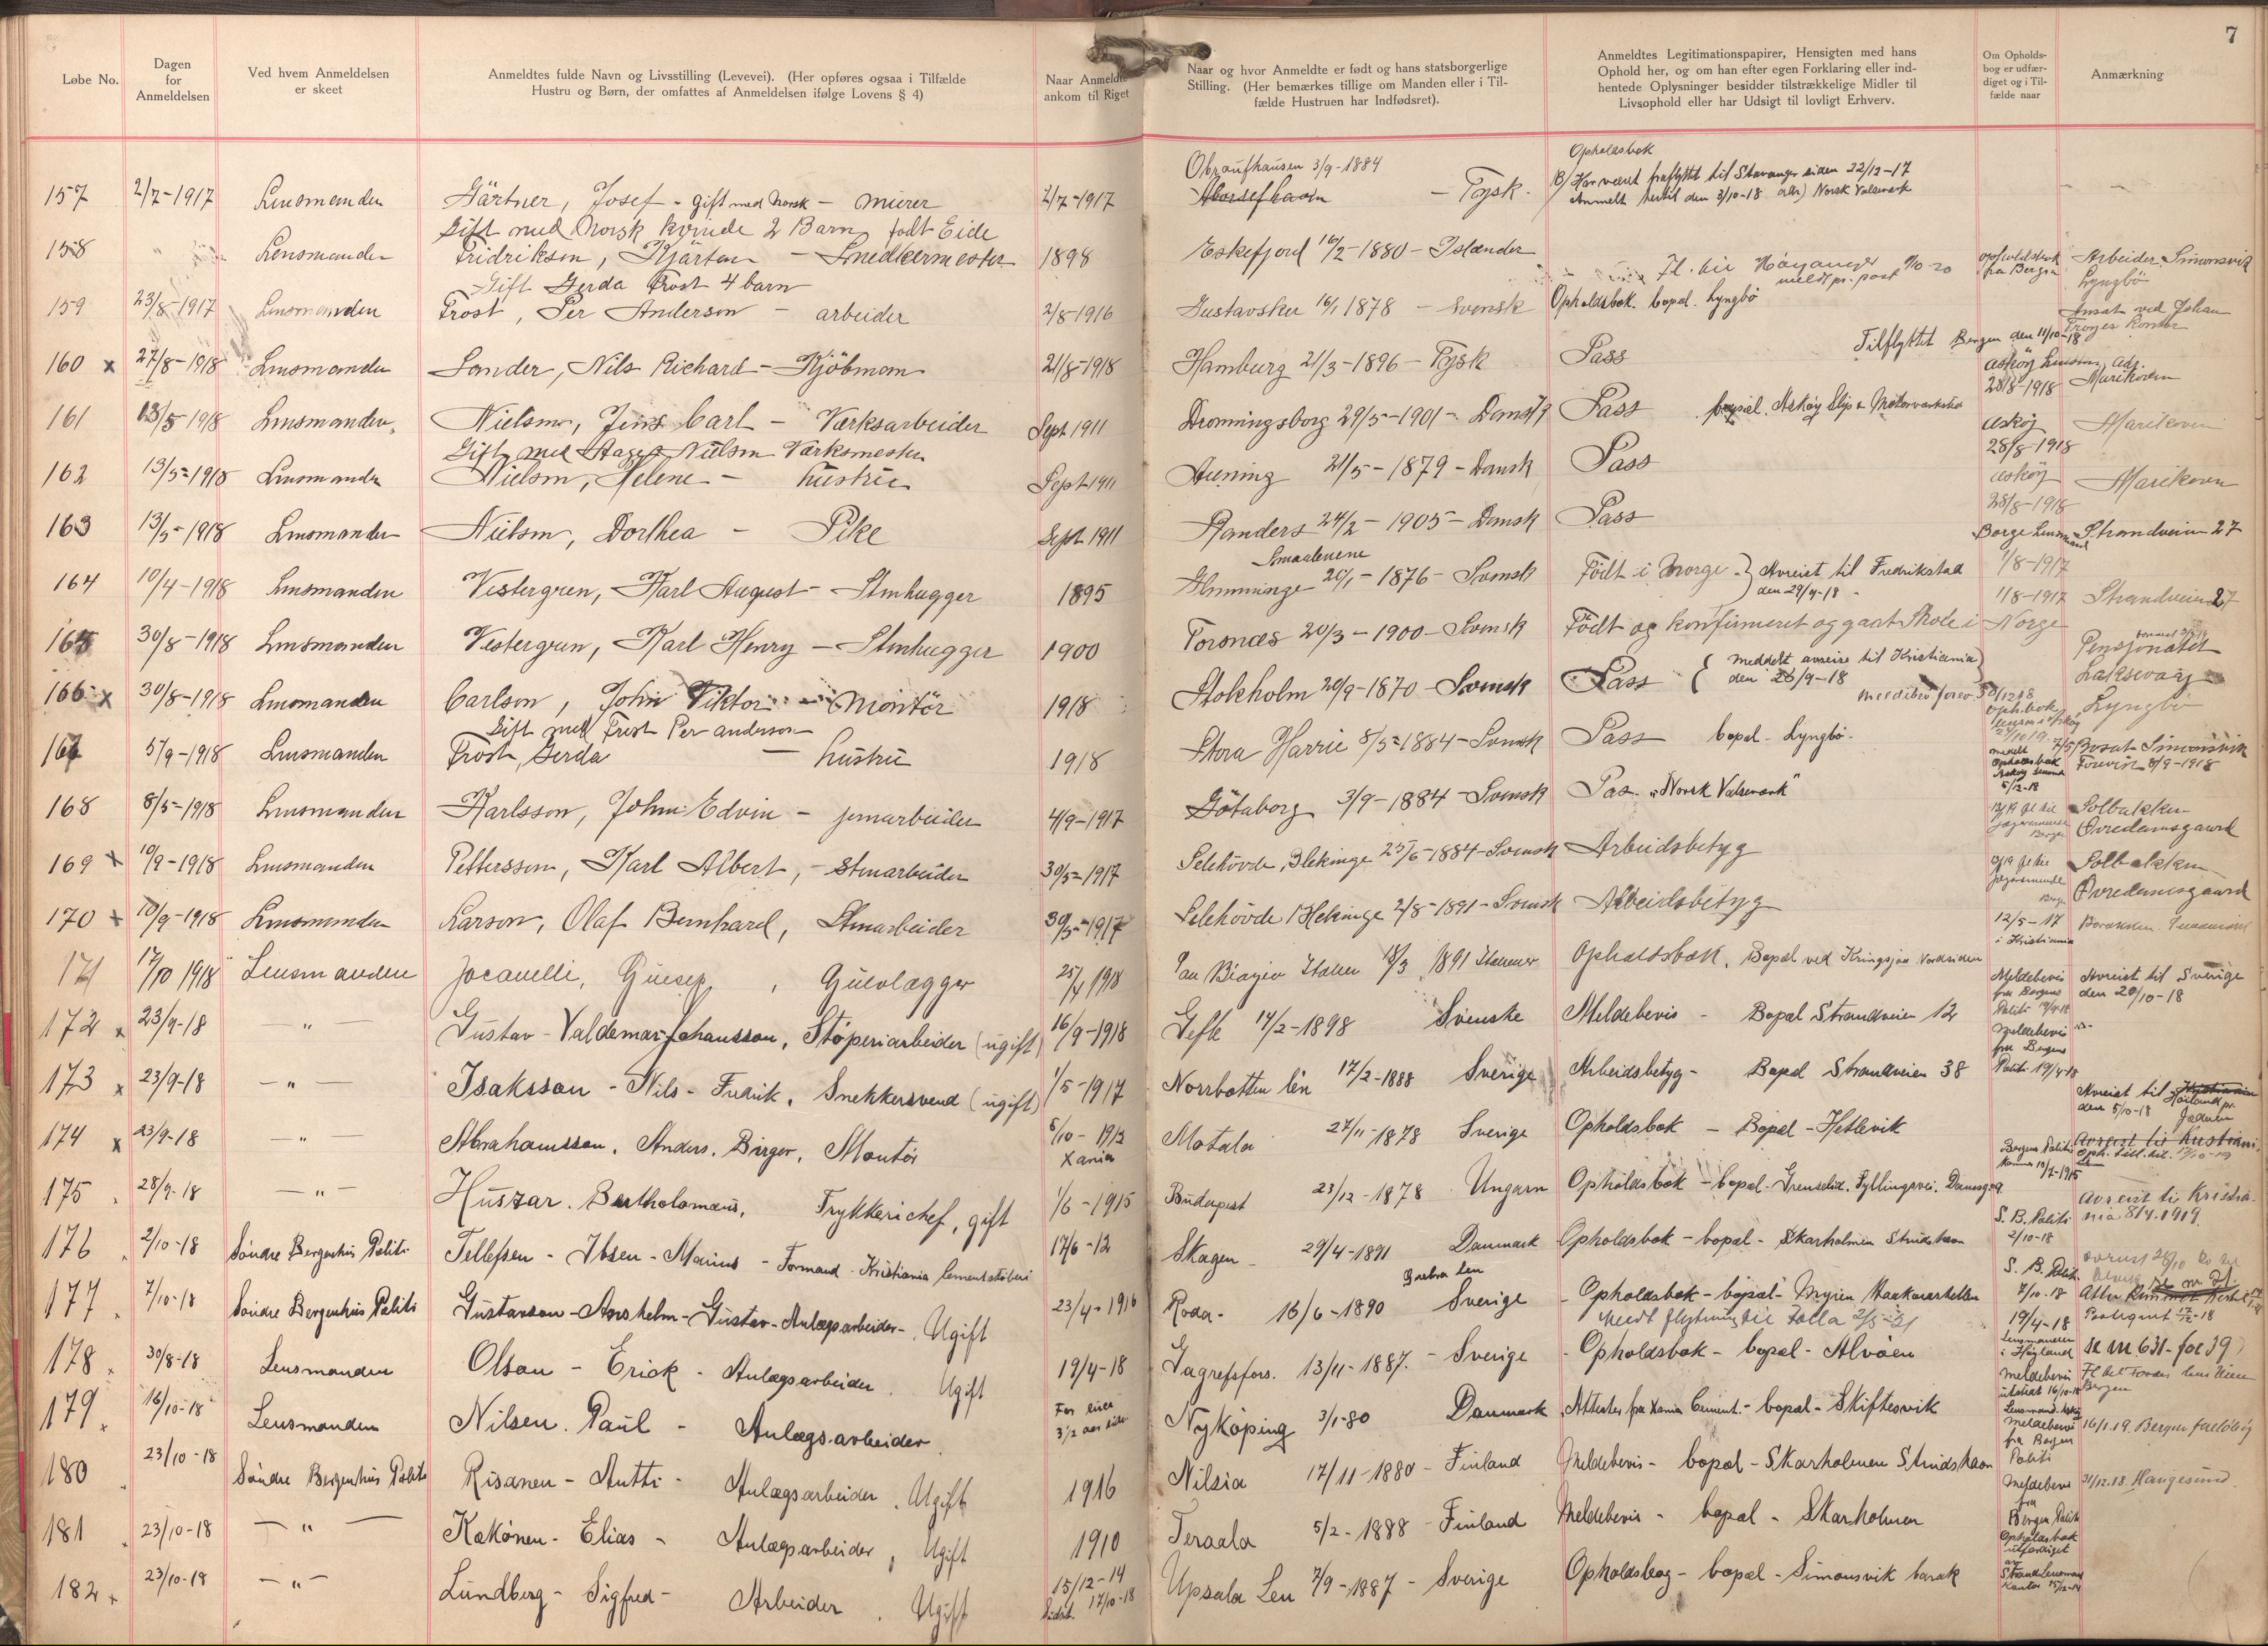 7
Løbe No.
Dagen for Anmeldelsen
Ved hvem Anmeldelsen er skeet
Anmeldtes fulde Navn og Livsstilling (Levevei). (Her opføres ogsaa i Tilfælde Hustru og Børn, der omfattes af Anmeldelsen ifølge Lovens § 4)
Naar Anmeldte ankom til Riget
Naar og hvor Anmeldte er født og hans statsborgerlige Stilling. (Her bemærkes tillige om Manden eller i Tilfælde Hustruen har Indfødsret).
Anmeldtes Legitimationspapirer, Hensigten med hans Ophold her, og om han efter egen Forklaring eller indhentede Oplysninger besidder tilstrækkelige Midler til Livsophold eller har Udsigt til lovligt Erhverv.
Om Opholdsbog er udfærdiget og i Tilfælde naar
Anmærkning
Opholdsbok
157 2/7-1917 Lensmanden Gärtner, Josef - gift med Norsk - murer 2/7-1917 3/9-1884 - Tysk. Har været fraflyttet til Stavanger siden 22/12-17
Anmelt hertil den 3/10-18 Norsk Valseverk
Gift med Norsk kvinde 2 Barn, født Eide
158 Lensmanden Fridrikson, Kjärtan - Snedkermester 1898 Eskefjord 16/2-1880 - Islænder opholdsbok fra Bergen Arbeider Simonsvik Lyngbö
Gift Gerda Frost 4 barn
159 23/8-1917 Lensmanden Frost, Per Anderson - arbeider 2/8-1916 16/1 1878 - Svensk Opholdsbok. bopæl. Lyngbö
Tilflyttet Bergen den 11/10-18
160 x 27/8-1918 Lensmanden Sander, Nils Richard - Kjöbmann 21/8-1918 Hamburg 21/3-1896 - Tysk Pass 28/8-1918 Marikoven
161 13/5-1918 Lensmanden Nielsen, Jens Carl - Værksarbeider Sept 1911 Dronningsborg 29/5-1901 - Dansk Pass bopæl. Askøy Slip & Motorværksted Askøj 28/8-1918 Marikoven
Gift med Nielsen Værksmester
162 13/5-1918 Lensmanden Nielsen, Helene - hustru Sept 1911 Auning 21/5-1879 - Dansk Pass askøj 28/8-1918 Marikoven
163 13/5-1918 Lensmanden Nielsen, Dorthea - Pike Sept 1911 Randers 24/2-1905 - Dansk Pass
Borge Lensmand Strandveien 27
Smaalenene
164 10/4-1918 Lensmanden Vestergren, Karl August - Stenhugger 1895 20/1-1876 - Svensk Født i Norge - Avreist til Fredrikstad den 29/9-18 1/8-1917
165 30/8-1918 Lensmanden Vestergren, Karl Henry - Stenhugger 1900 Torsnæs 20/3-1900 - Svensk Født og konfirmeret og gaat Skole i Norge 1/8-1917 Strandveien 27
166 x 30/8-1918 Lensmanden Carlson, John Viktor - Montör 1918 Stokholm 20/9-1870 - Svensk Pass { meddelt avreise til Kristiania den 26/9-18 Pensjonatet Laksevaag
Gift med Frost Per anderson
167 5/9-1918 Lensmanden Frost, Gerda - hustru 1918 Stora Harrie 8/5-1884 - Svensk Pass bopæl - Lyngbö - Lyngbö
168 8/5-1918 Lensmanden Karlsson, John Edvin - jernarbeider 4/9-1917 Götaborg 3/9-1884 - Svensk Pas. "Norsk Valseverk" Bosat Simonsvik
169 x 10/9-1918 Lensmanden Pettersson, Karl Albert, - stenarbeider 30/5-1917 Blekinge 25/6-1884 - Svensk Arbeidsbetyg Solbakken Øvredamsgaard
170 x 10/9-1918 Lensmanden Larson, Olaf Bernhard, Stenarbeider 30/5-1917 2/8-1891 - Svensk Arbeidsbetyg Solbakken Øvredamsgaard
171 17/10 1918 Lensmanden Jocanelli, Guesep, Gulvlægger 25/4 1918 San Biagio Italien 18/3 1891 Italiener Opholdsbok. Bopæl ved Kringsjaa Nordviken 12/5-17 i Kristiania
172 x 23/9-18 - " - Gustav-Valdemar Johansson, Støperiarbeider (ugift) 16/9-1918 Gefle 14/2-1898 Svenske Meldebevis - Bopæl Strandveien 12 Meldebevis fra Bergens Politi Avreist til Sverige den 20/10-18
173 x 23/9-18 - " - Isaksson - Nils - Fredrik. Snekkersvend (ugift) 1/5-1917 Norrbotten län 17/2-1888 Sverige Arbeidsbetyg - Bopæl Strandveien 38 Meldebevis fra Bergens Politi 19/4-18
174 x 23/9-18 - " - Abrahamsson. Anders. Birger, Montör 6/10-1912 Xania Motala 27/11-1878 Sverige Opholdsbok - Bopæl - Hetlevik Avreist til den 5/10-18
175 28/9-18 - " - Huszar. Bertholomæus, Trykkerichef, gift 1/6-1915 Budapest 23/12-1878 Ungarn Opholdsbok - bopæl - Fyllingsvei. Damsg. Avreist til Kristiania 8/4.1919.
176 2/10-18 Søndre Bergenhus Politi Tellefsen - Ibsen - Marius - Formand Kristiania Cementstøberi 17/6-12 Skagen 29/4-1891 Danmark Opholdsbok - bopæl - Skarholmen Strudshavn S. B. Politi 2/10-18
177 7/10-18 Søndre Bergenhus Politi Gustavson - Anshelm - Gustav - Anlægsarbeider - Ugift 23/4-1916 Roda - 16/6-1890 Sverige Opholdsbok - bopæl - Myren S. B. Politi 7/10-18
178 30/8-18 Lensmanden Olson - Erick - Anlægsarbeider. Ugift 19/4-18 13/11-1887. - Sverige - Opholdsbok - bopæl - Alvøen 19/4-18 Lensmanden i se nr 631 - fol 39)
179 16/10-18 Lensmanden Nilsen. Paul - Anlægsarbeider For circa 3 1/2 aar siden Nykøping 3/1-80 Danmark Attester fra Xania Cement. - bopæl - Skiftesvik meldebevis utstedt 16/10-18
180 23/10-18 Søndre Bergenhus Politi Risanen - Antti - Anlægsarbeider. Ugift 1916 Nilsia 17/11-1880 - Finland Meldebevis - bopæl - Skarholmen Strudshavn meldebevis fra Bergen Politi 16/1.19. Bergen
181 23/10-18 - " - Kakönen - Elias - Anlægsarbeider, Ugift 1910 Teraala 5/2-1888 - Finland Meldebevis - bopæl - Skarholmen Meldebevis fra Bergen Politi 31/12.18 Haugesund.
182 x 23/10-18 - " - Lundberg - Sigfred - Arbeider. Ugift 15/12-14 Sidst. 17/10-18 Upsala Len 7/9-1887 - Sverige Opholdsbog - bopæl - Simonsvik barak Opholdsbok utfærdiget